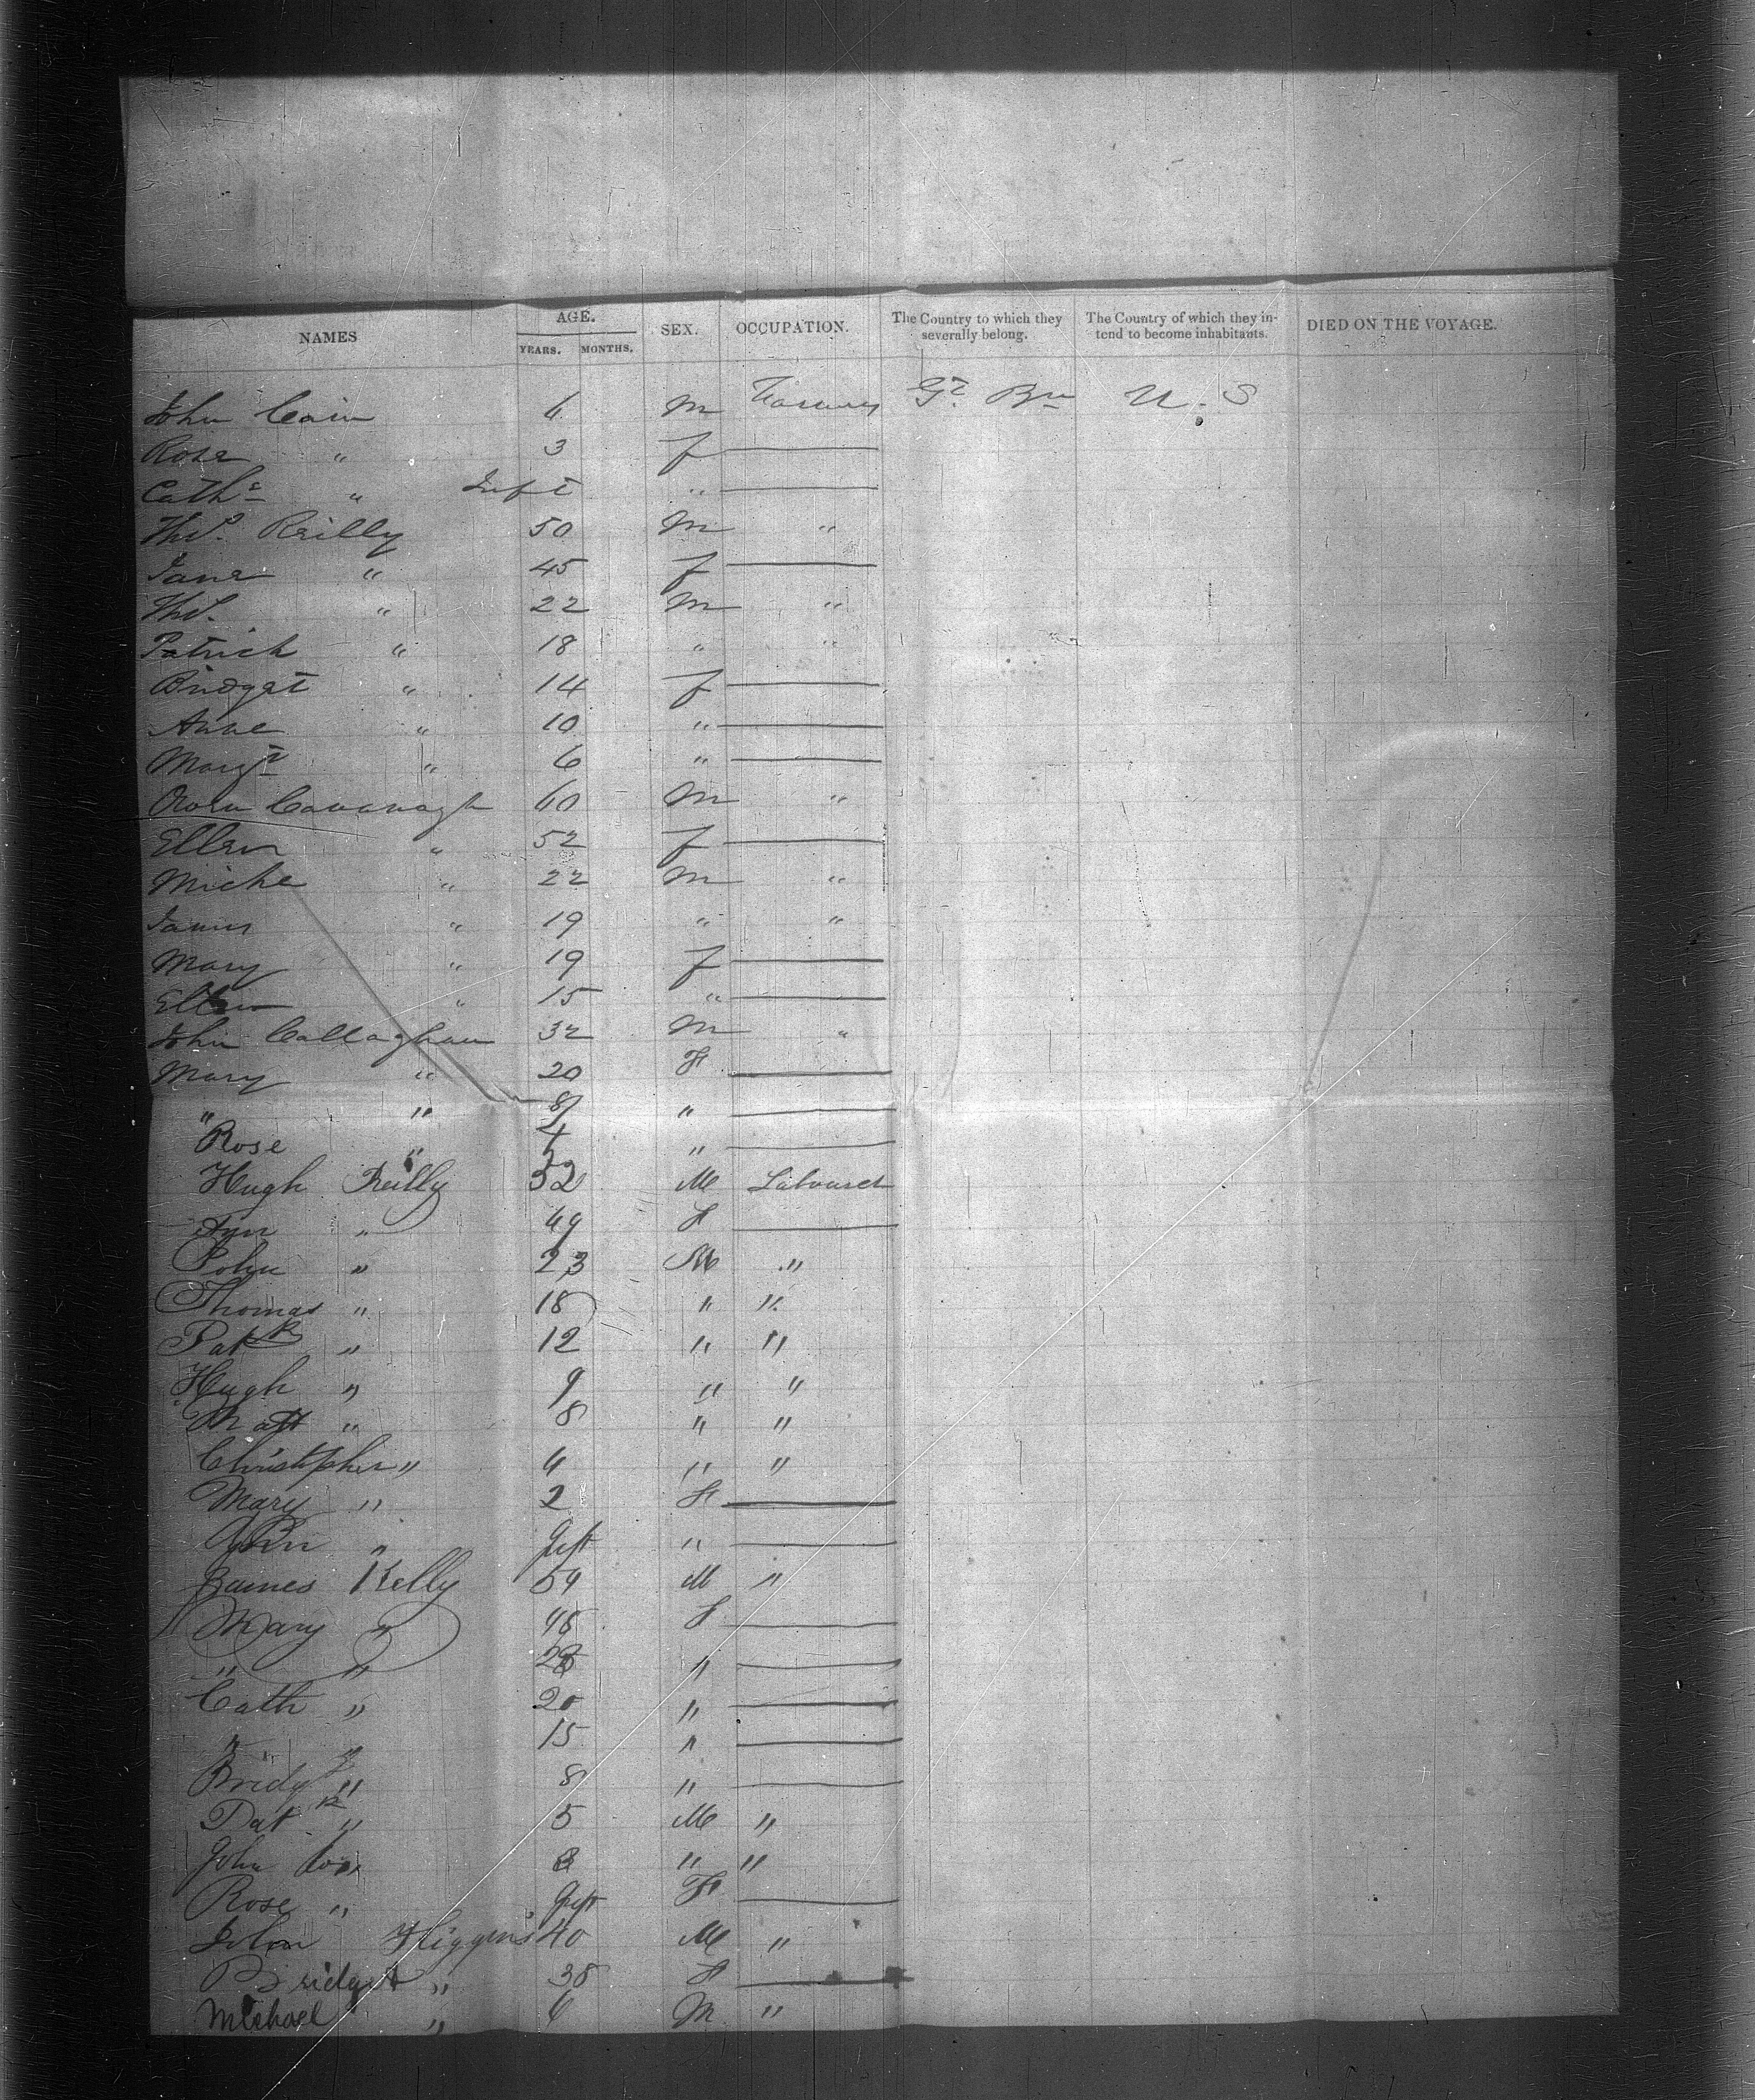 NAMES AGE. SEX. OCCUPATION. The Country to which they severally belong. The Country of which they intend to become inhabitants. DIED ON THE VOYAGE.
YEARS. MONTHS.
John Cain 6 M Farmer Gt. Bn U.S
Rose " 3 f
Cathe " Inft "
Thos. Reilly 50 M "
Jane " 45 f
Thos. " 22 M "
Patrick " 18 " "
Bridget " 14 f
Anne " 10 "
Margt " 6 "
Owen Cavanagh 60 M "
Ellen " 52 f
Miche " 22 M "
James " 19 " "
Mary " 19 f
Ellen " 15 "
John Callaghan 32 M "
Mary " 20 F
" " 8 "
Rose " "
Hugh Reilly 52 M Labourer
Ann " 49 F
John " 23 M "
Thomas " 18 " "
Patk " 12 " "
Hugh " 9 " "
Matt " 8 " "
Christopher " 4 " "
Mary " 2 F
Ann " Inft "
James Kelly 59 M "
Mary " 45 F
" " "
Cath " 20 "
" " 15 "
Bridgt " 8 "
Patk " 5 M "
John " 3 " "
Rose " Inft F
John Higgins 40 M "
Bridget " 38 F
Michael " 6 M "